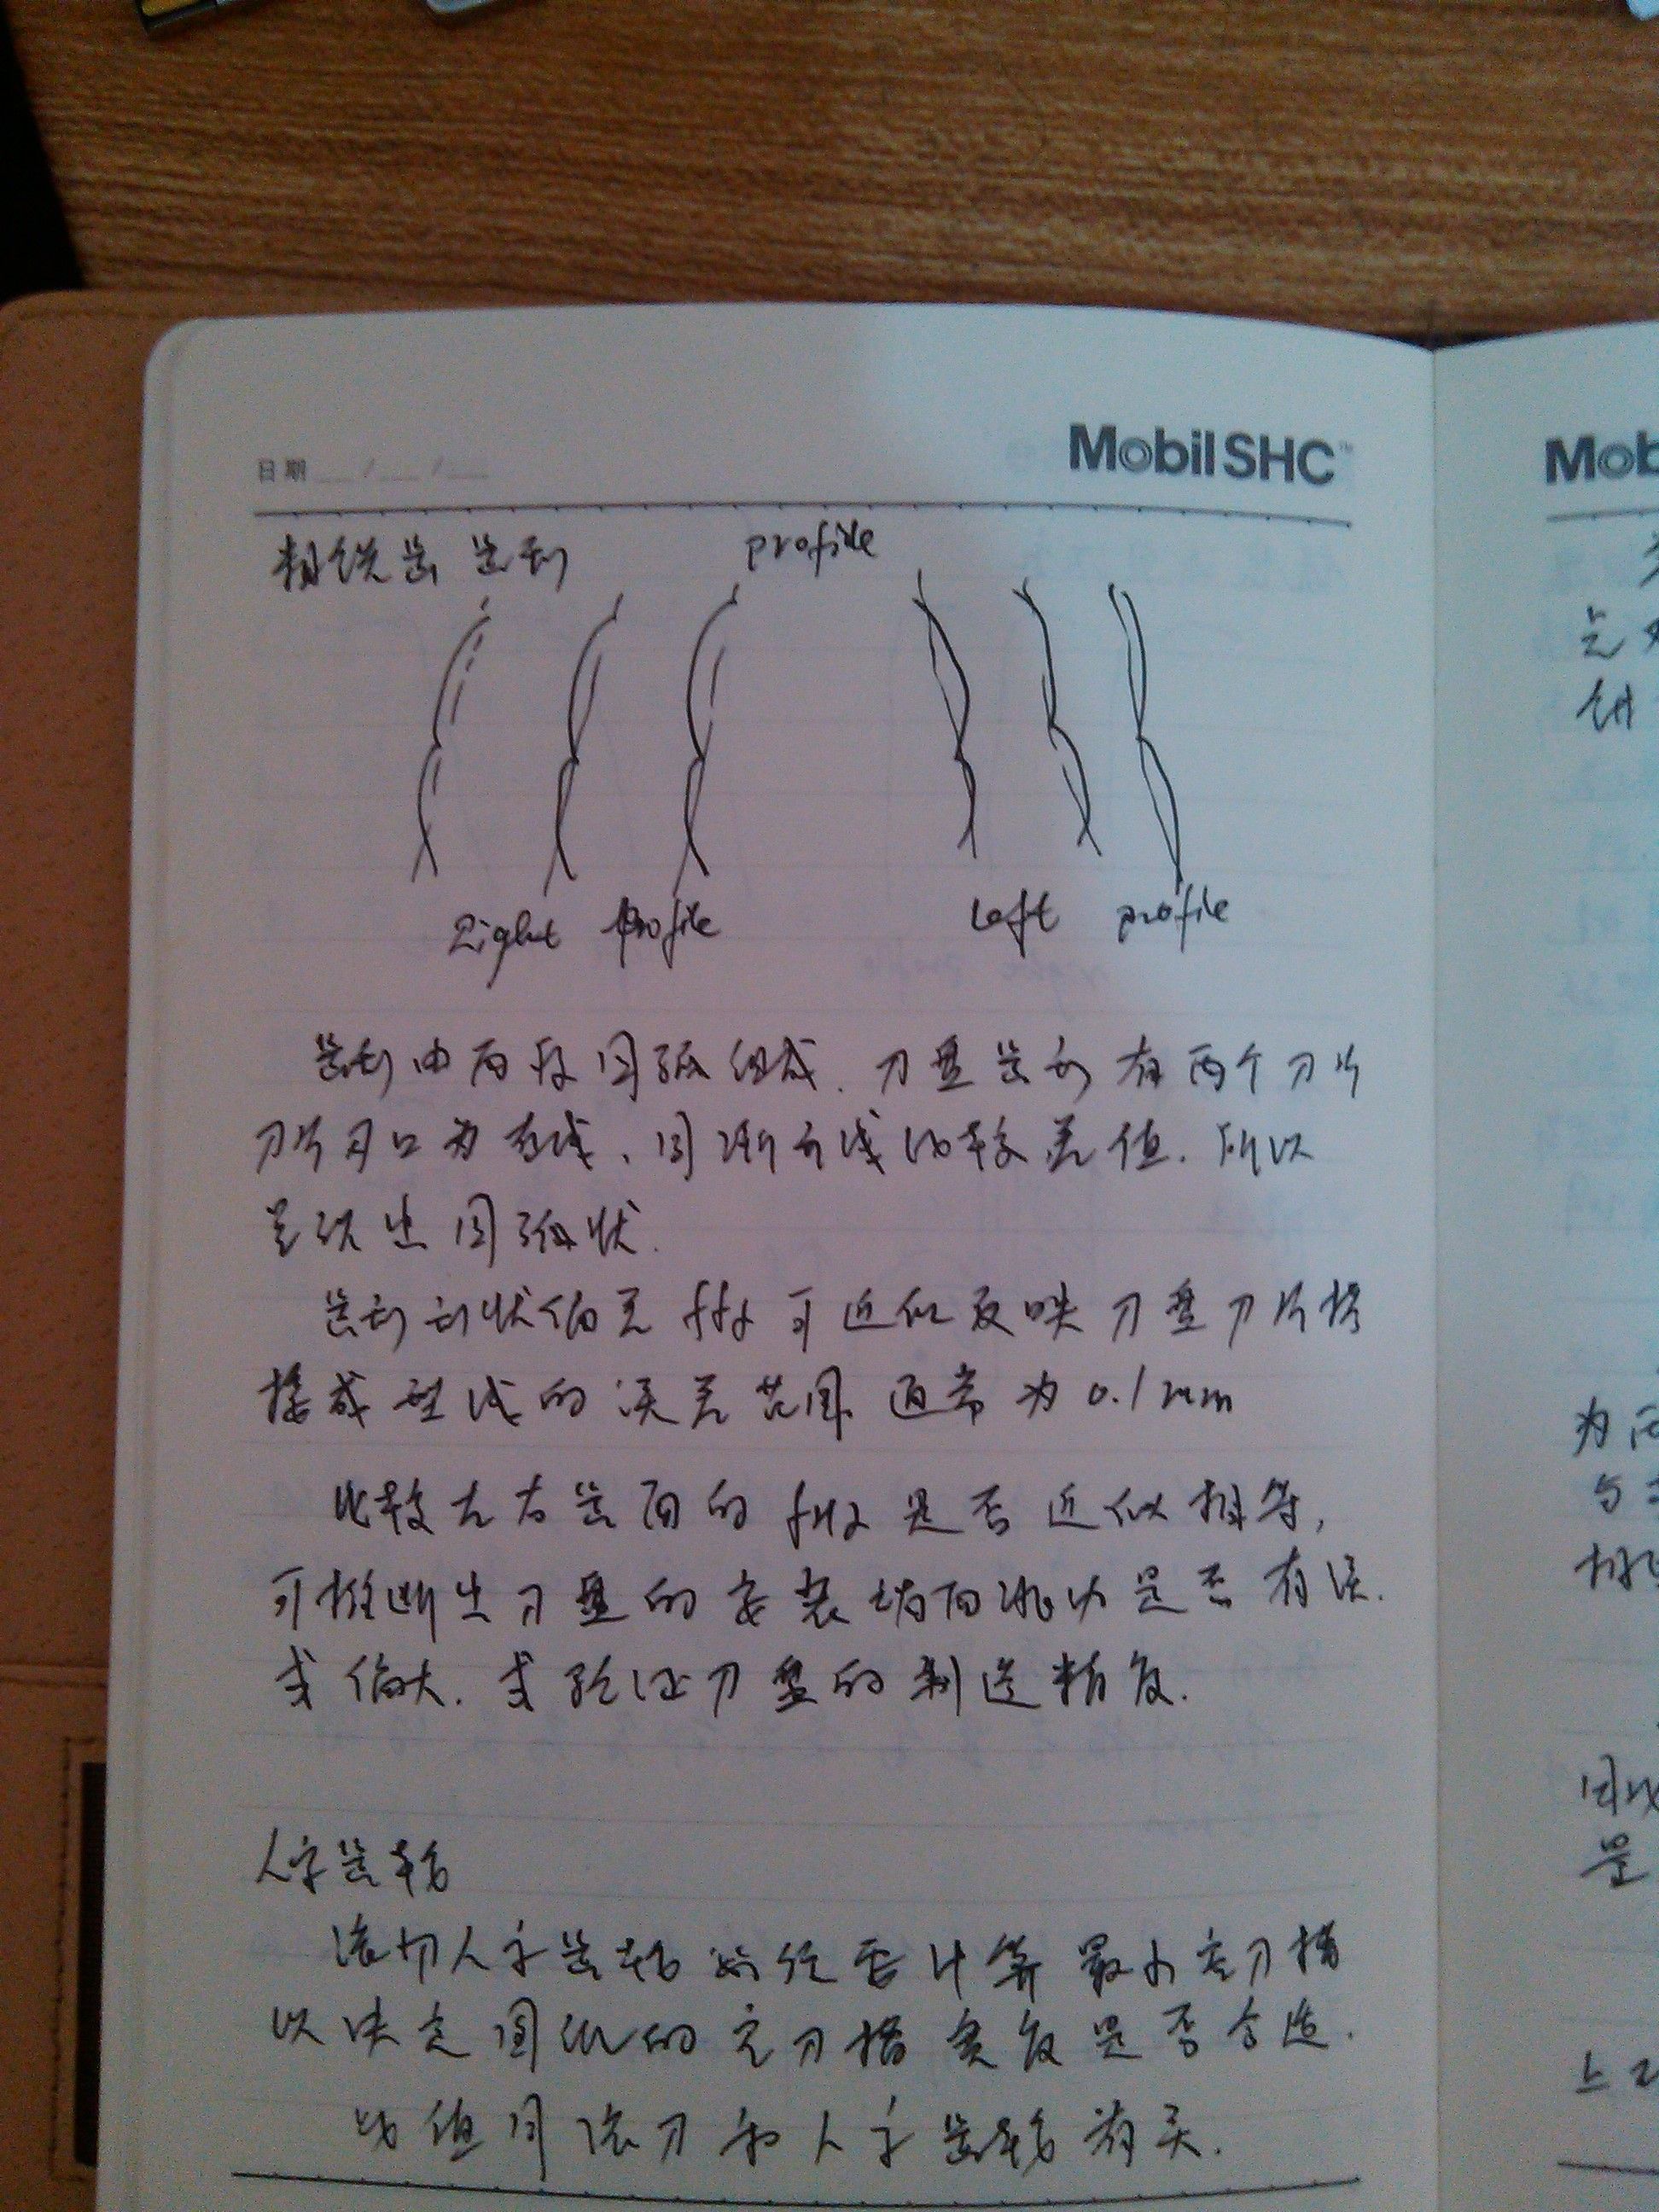 日期 / /
MobilSHC™
Mob
粗铣齿 齿形
profile
Right Profile
Left profile
齿形由两段圆弧组成. 刀盘齿形有两个刀片
刀片刃口为直线、同渐开线比较差值. 所以
呈现出圆弧状.
齿形形状偏差 ffα 可近似反映刀盘刀片拼
接成型线的误差范围 通常为 0.1mm
比较左右齿面的 fHα 是否近似相等,
可推断出刀盘的安装端面跳动是否有误.
或偏大. 或验证刀盘的制造精度.
人字齿轮
滚切人字齿轮 计算最小空刀槽
以决定图纸的空刀槽宽度是否合适.
此值同滚刀和人字齿轮有关.
为
是